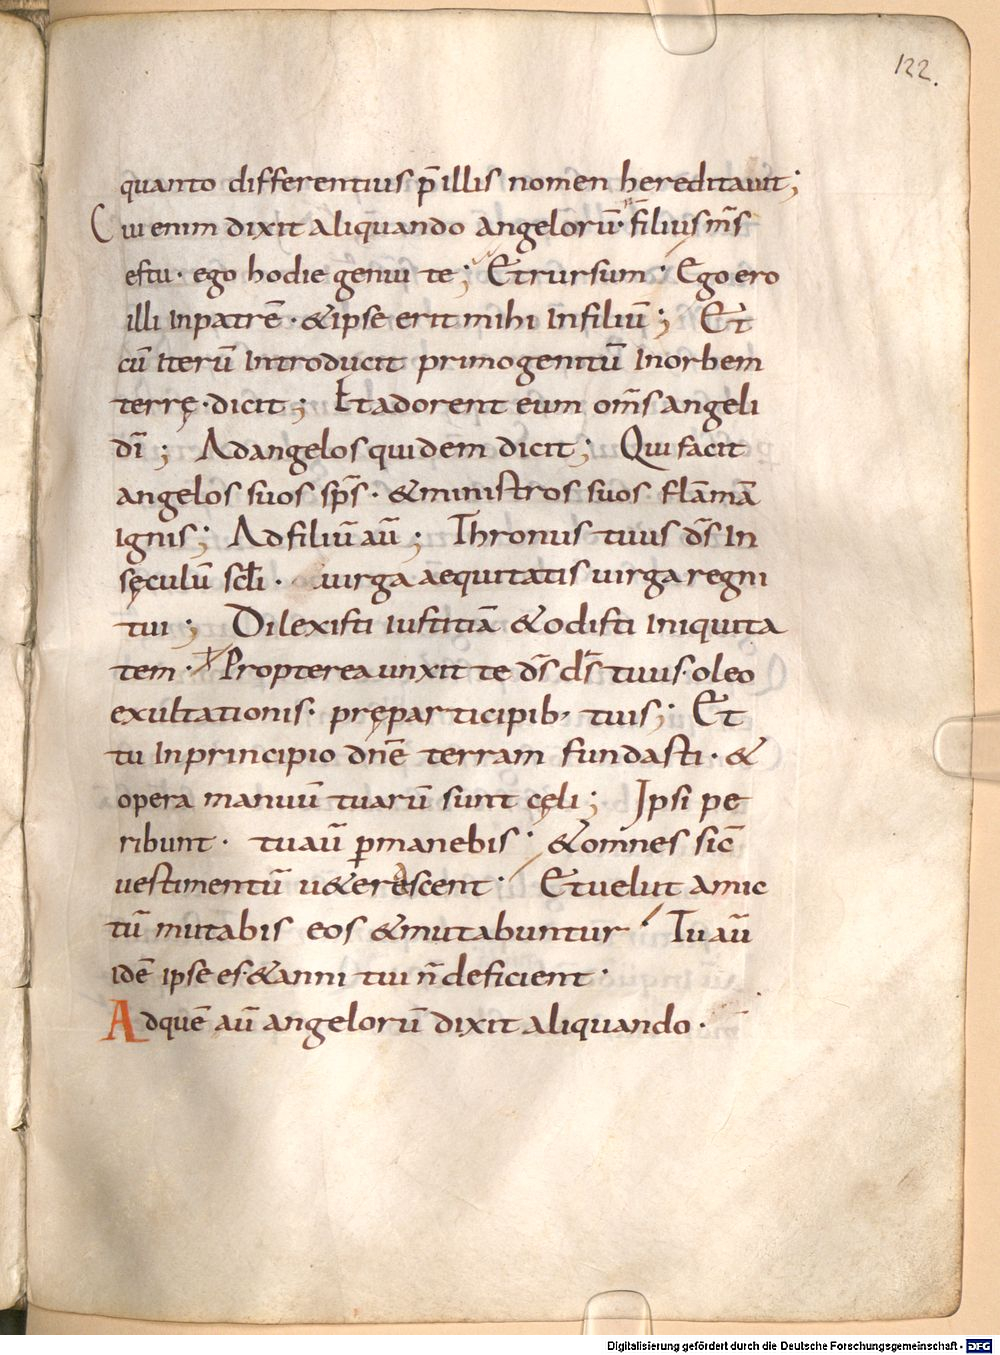 122.
quanto differentius p̄ illis nomen hereditauit;
Cui enim dixit aliquando angelorū· filius m̄s
estu· ego hodie genui te; Et rursum· Ego ero
illi inpatrē· & ipse erit mihi infiliū; Et
cū iterū introducit primogenitū inorbem
terrę· dicit; Et adorent eum om̄s angeli
dī; Adangelos quidem dicit; Qui facit
angelos suos sp̄s· & ministros suos flāmā
ignis; Adfiliū aū; Thronus tuus d̄s in
sęculū scłi· uirga aequitatis uirga regni
tui; Dilexisti iustitiā & odisti iniquita
tem· Propterea unxit te d̄s d̄s tuus· oleo
exultationis· prę participib· tuis; Et
tu inprincipio dn̄e terram fundasti· &
opera manuū tuarū sunt cęli; Ipsi pe
ribunt· tu aū ꝑmanebis· & omnes sic̄
uestimentū u&erascent· Et uelut amic
tū mutabis eos & mutabuntur· Tu aū
idē ipse es· & anni tui n̄ deficient·
Adquē aū angelorū dixit aliquando·
Digitalisierung gefördert durch die Deutsche Forschungsgemeinschaft - DFG